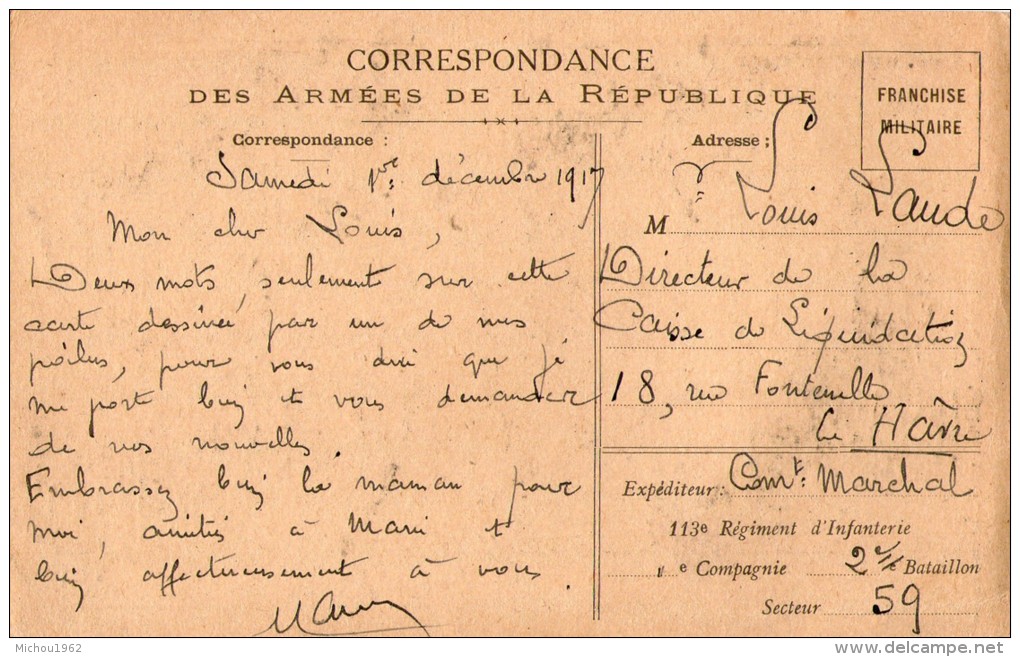 CORRESPONDANCE
DES ARMÉES DE LA RÉPUBLIQUE
FRANCHISE
MILITAIRE
Correspondance :
Samedi 1er décembre 1917
Mon cher Louis,
Deux mots, seulement sur cette
carte dessinée par un de mes
poilus, pour vous dire que je
me port bien et vous demander
de vos nouvelles
Embrassez bien la maman pour
moi, amitiés à Marie et
bien affectueusement à vous
Adresse :
M Louis Laude
Directeur de la
Caisse de Liquidation
18, rue Fontenelle
Le Hâvre
Expéditeur : Comt: Marchal
113e Régiment d'Infanterie
e Compagnie 2e Bataillon
Secteur 59
Michou1962
delcampe.net